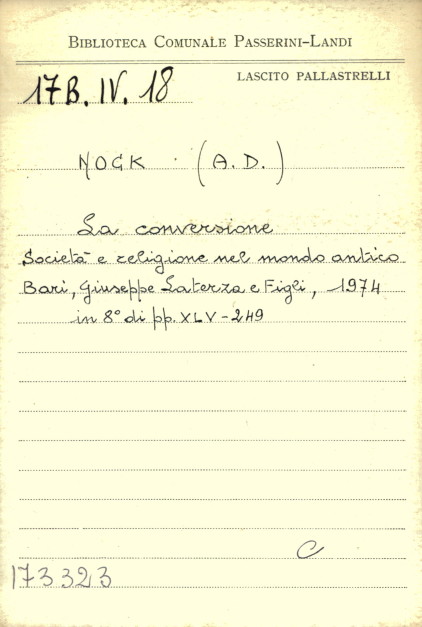 BIBLIOTECA COMUNALE PASSERINI-LANDI
LASCITO PALLASTRELLI
17B. IV. 18
NOCK (A.D.)
La conversione
Società e religione nel mondo antico
Bari, Giuseppe Laterza e Figli, 1974
in 8° di pp. XLV-249
C
173323